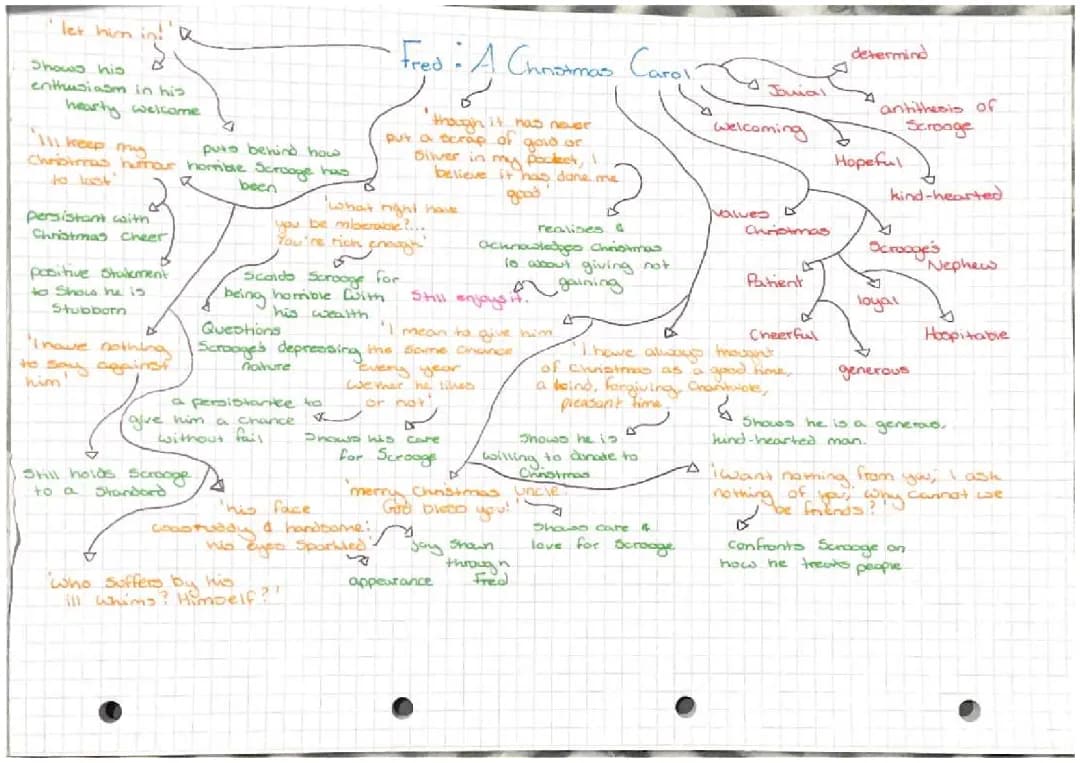 Fred: A Christmas Carol
'let him in!'
Shows his
enthusiasm in his
hearty welcome
puts behind how
horrible Scrooge has
been
'I'll keep my
Christmas humour
to last'
persistant with
Christmas cheer
positive statement
to show he is
Stubborn
'though it has never
put a scrap of gold or
silver in my pocket, I
believe it has done me
good'
realises &
acknowledges Christmas
is about giving not
gaining
Still enjoys it.
'What right have
you be miserable?...
You're rich enough'
Scolds Scrooge for
being horrible with
his wealth
Questions
Scrooge's depressing
nature
'I have nothing
to say against
him'
Still holds Scrooge
to a standard
'I mean to give him
the same chance
every year
wether he likes
or not'
a persistantce to
give him a chance
without fail
Shows his care
for Scrooge
'I have always thought
of Christmas as a good time,
a kind, forgiving, charitable,
pleasant time.'
Shows he is
willing to donate to
Christmas
Shows he is a generous,
kind-hearted man.
'merry Christmas uncle
God bless you!'
Shows care &
love for Scrooge
'I want nothing from you; I ask
nothing of you; why cannot we
be friends?'
Confronts Scrooge on
how he treats people
'his face
was ruddy & handsome:
his eyes sparkled'
Joy shown
through
Fred
appearance
'Who suffers by his
ill whims? Himself?'
determind
Jovial
antithesis of
Scrooge
Welcoming
Hopeful
kind-hearted
values
Christmas
Scrooge's
Nephew
Patient
loyal
Hospitable
Cheerful
generous